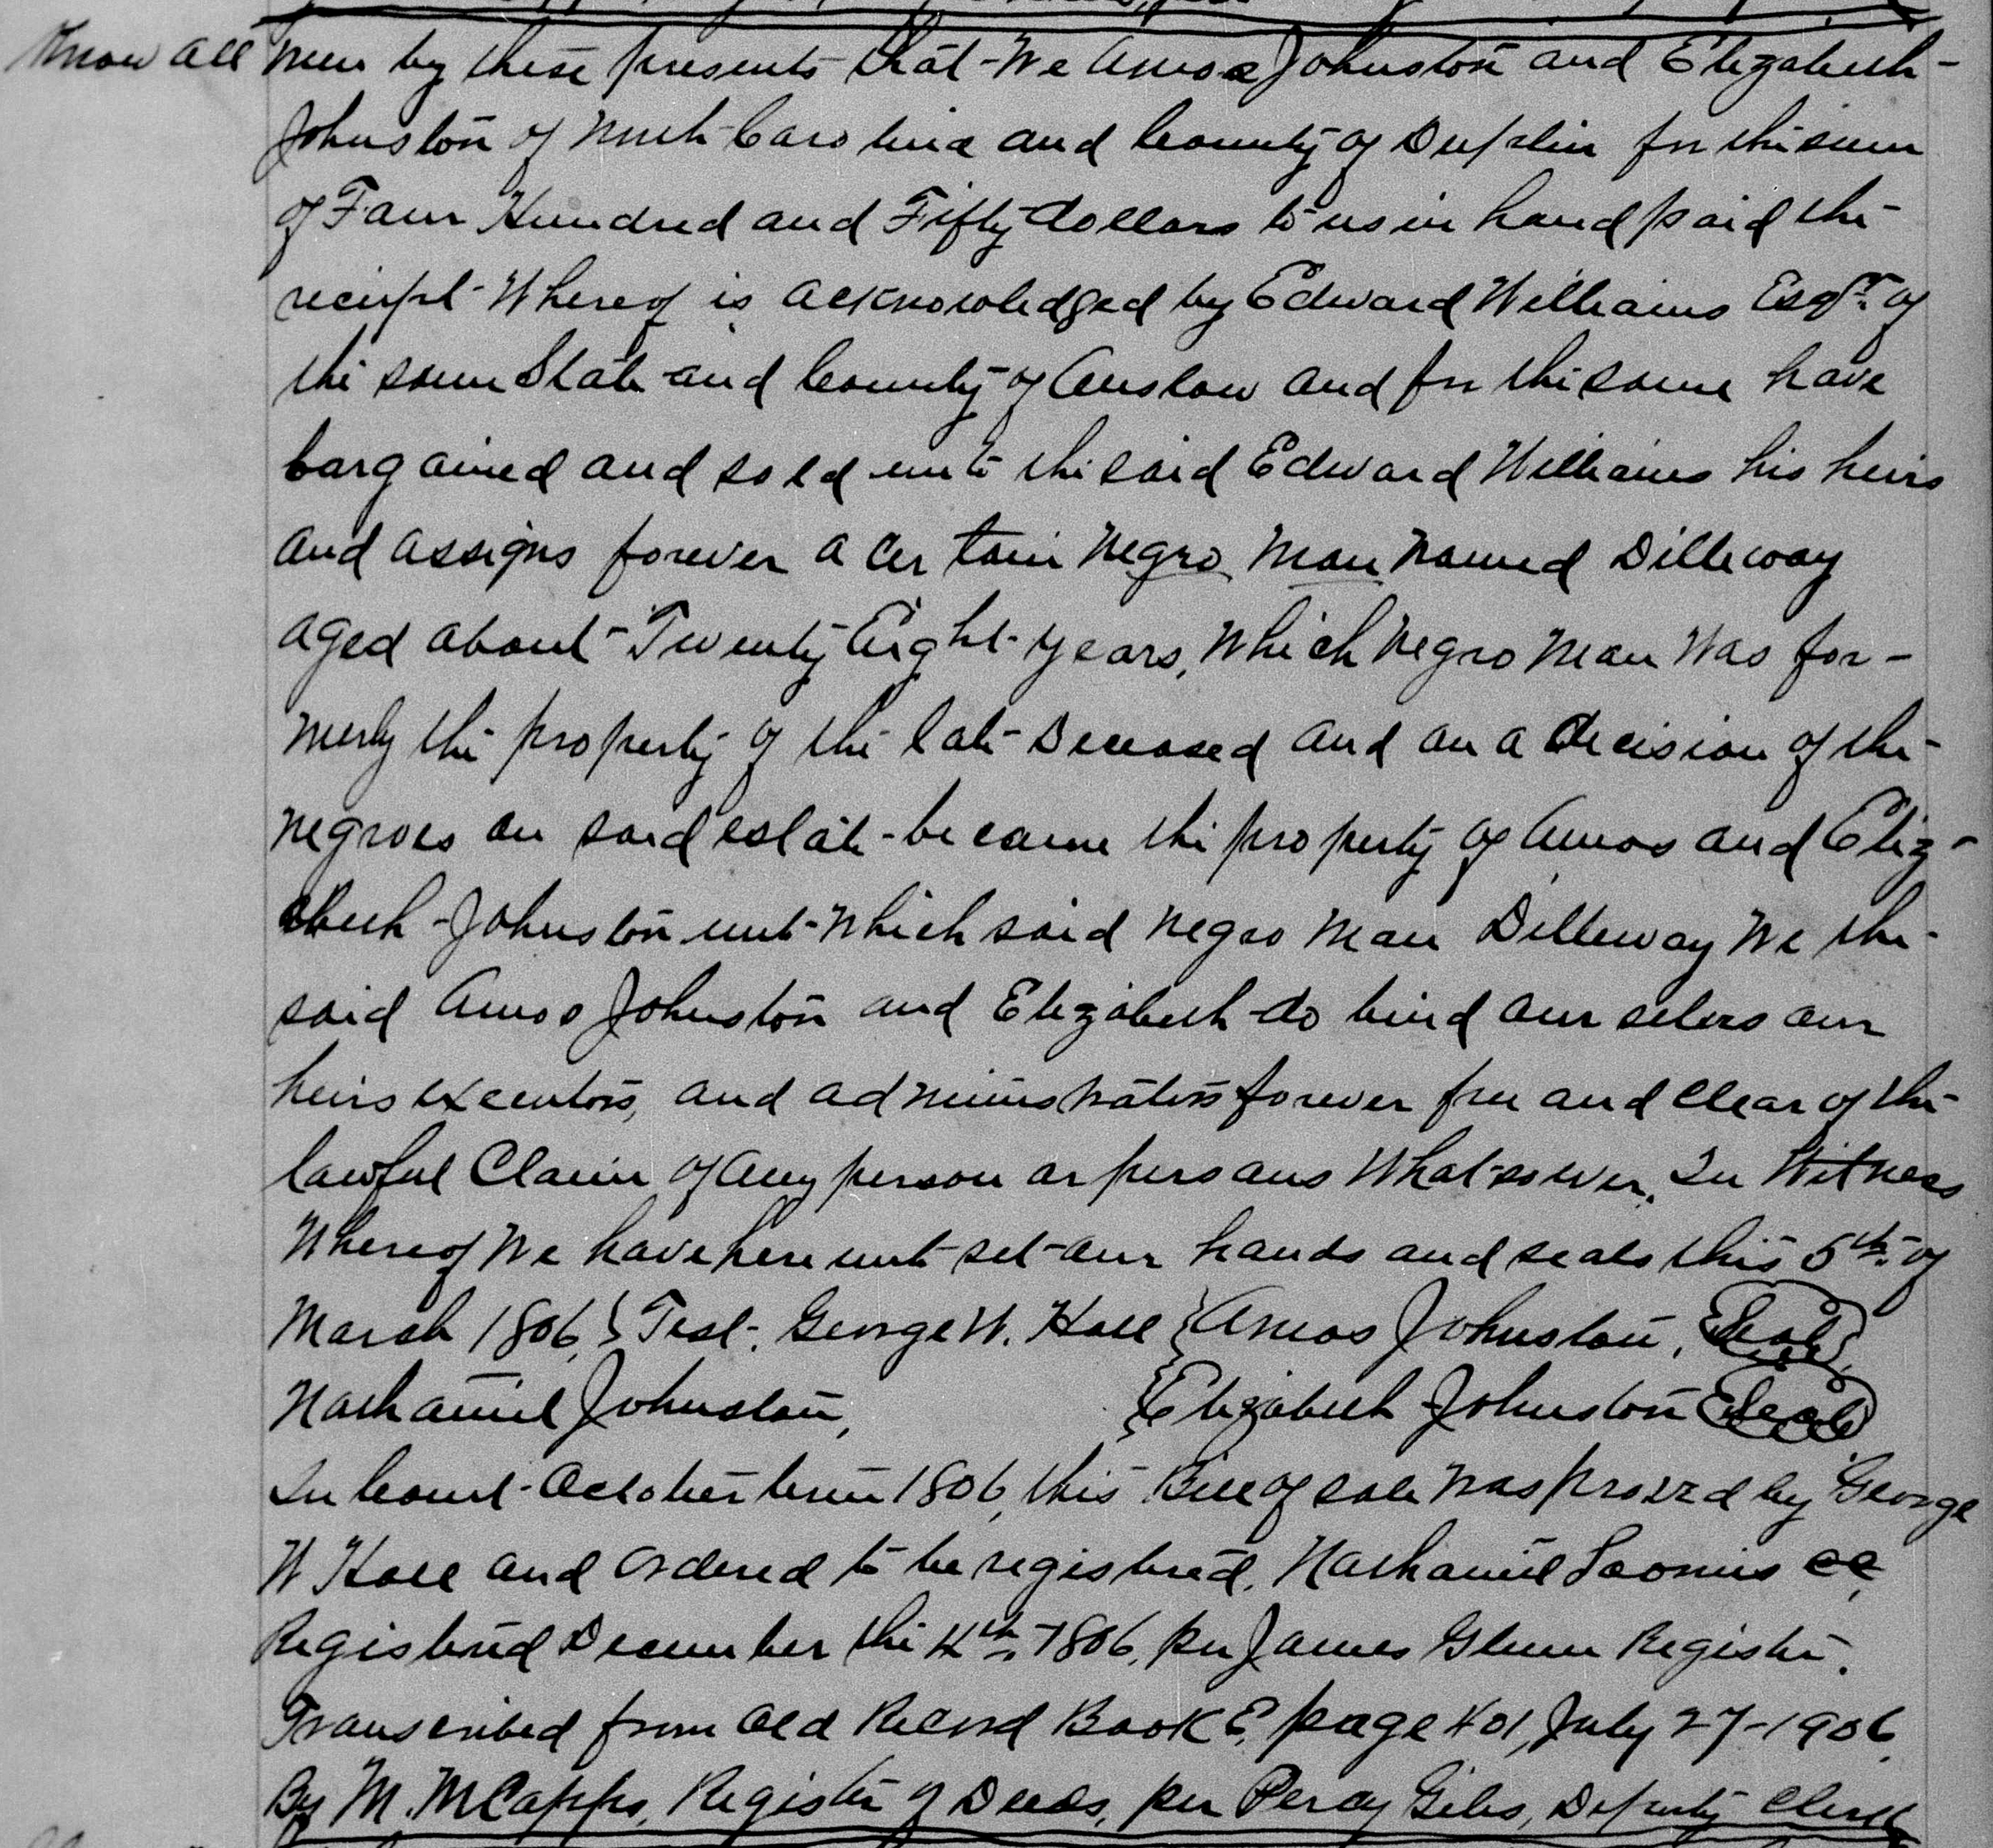 Know all men by these presents that We Amos Johnston and Elizabeth
Johnston of North Carolina and County of Duplin for the sum
of Four Hundred and Fifty dollars to us in hand paid the
receipt Whereof is acknowledged by Edward Williams Esqr. of
the same State and County of Onslow and for the same have
bargained and sold unto the said Edward Williams his heirs
and assigns forever a certain Negro Man named Dilleway
aged about Twenty Eight years, Which Negro Man Was for-
merly the property of the late Deceased and on a decision of the
negroes on said estate became the property of Amos and Eliz-
abeth Johnston unto which said negro man Dilleway We the
said Amos Johnston and Elizabeth do bind our selves our
heirs executors, and administrators forever free and clear of the
lawful Claim of any person or persons Whatsoever. In Witness
Whereof We have here unto set our hands and seals this 5th. of
March 1806, } Test. George W. Hall { Amos Johnston, Seal
Nathaniel Johnston, { Elizabeth Johnston Seal
In Court October term 1806, this Bill of sale was proved by George
W Hall and ordered to be registered. Nathaniel Loomis cc,
Registered December the 4th, 1806, per James Glenn Register.
Transcribed from Old Record Book E, page 401, July 27-1906.
By M. M Capps, Register of Deeds, per Percy Giles, Deputy Clerk